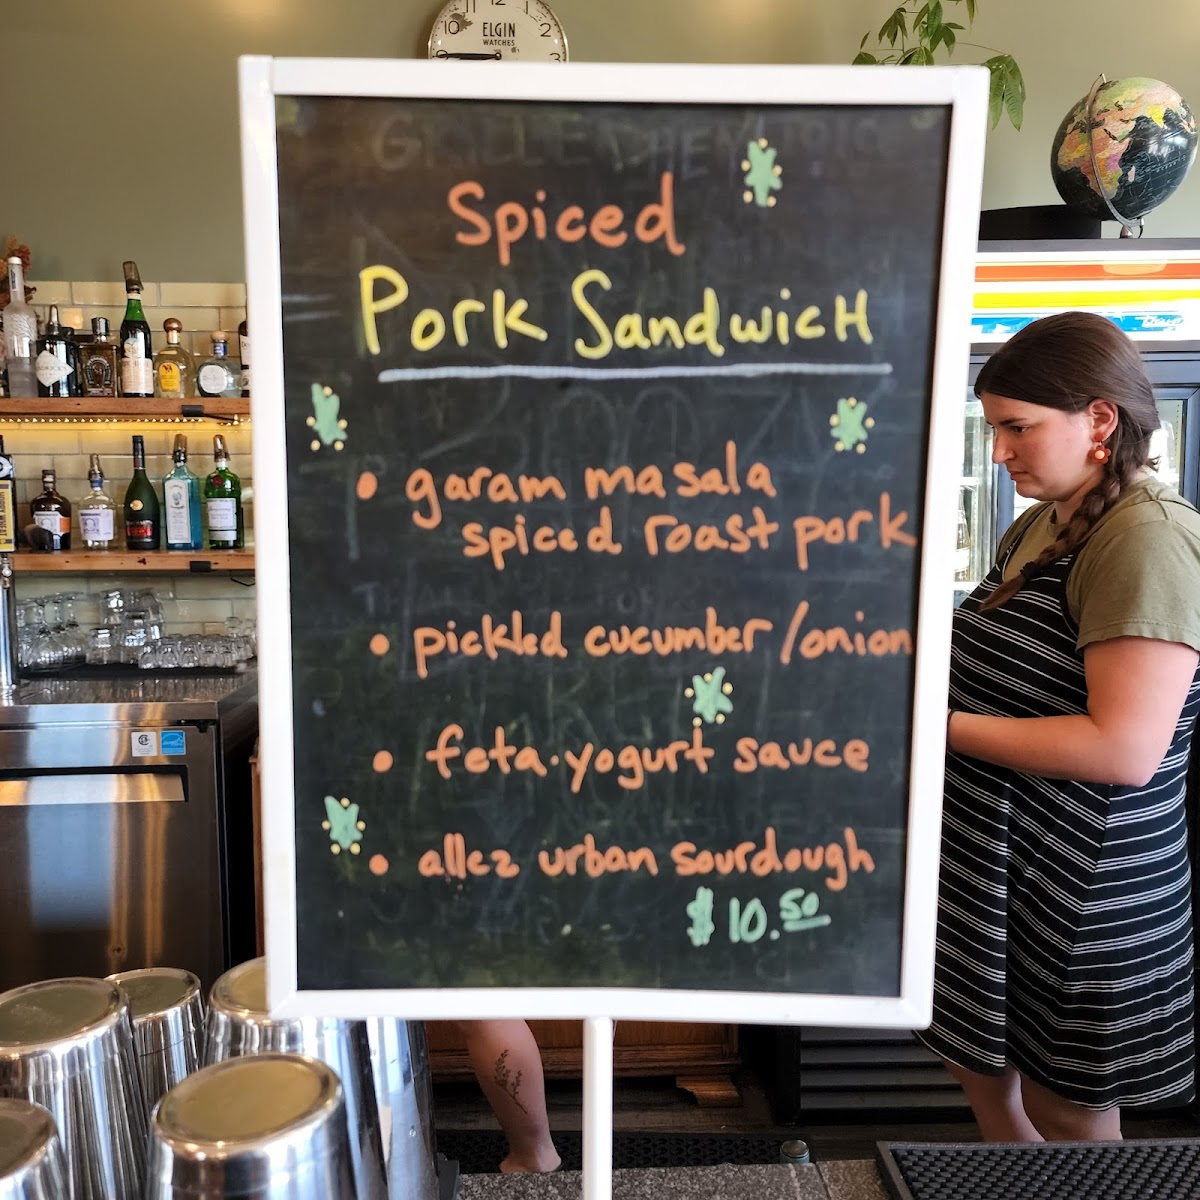 11 12 1
10 2
ELGIN
WATCHES
Spiced
Pork Sandwich
• garam masala
spiced roast pork
• pickled cucumber/onion
• feta·yogurt sauce
• allez urban sourdough
$10.50